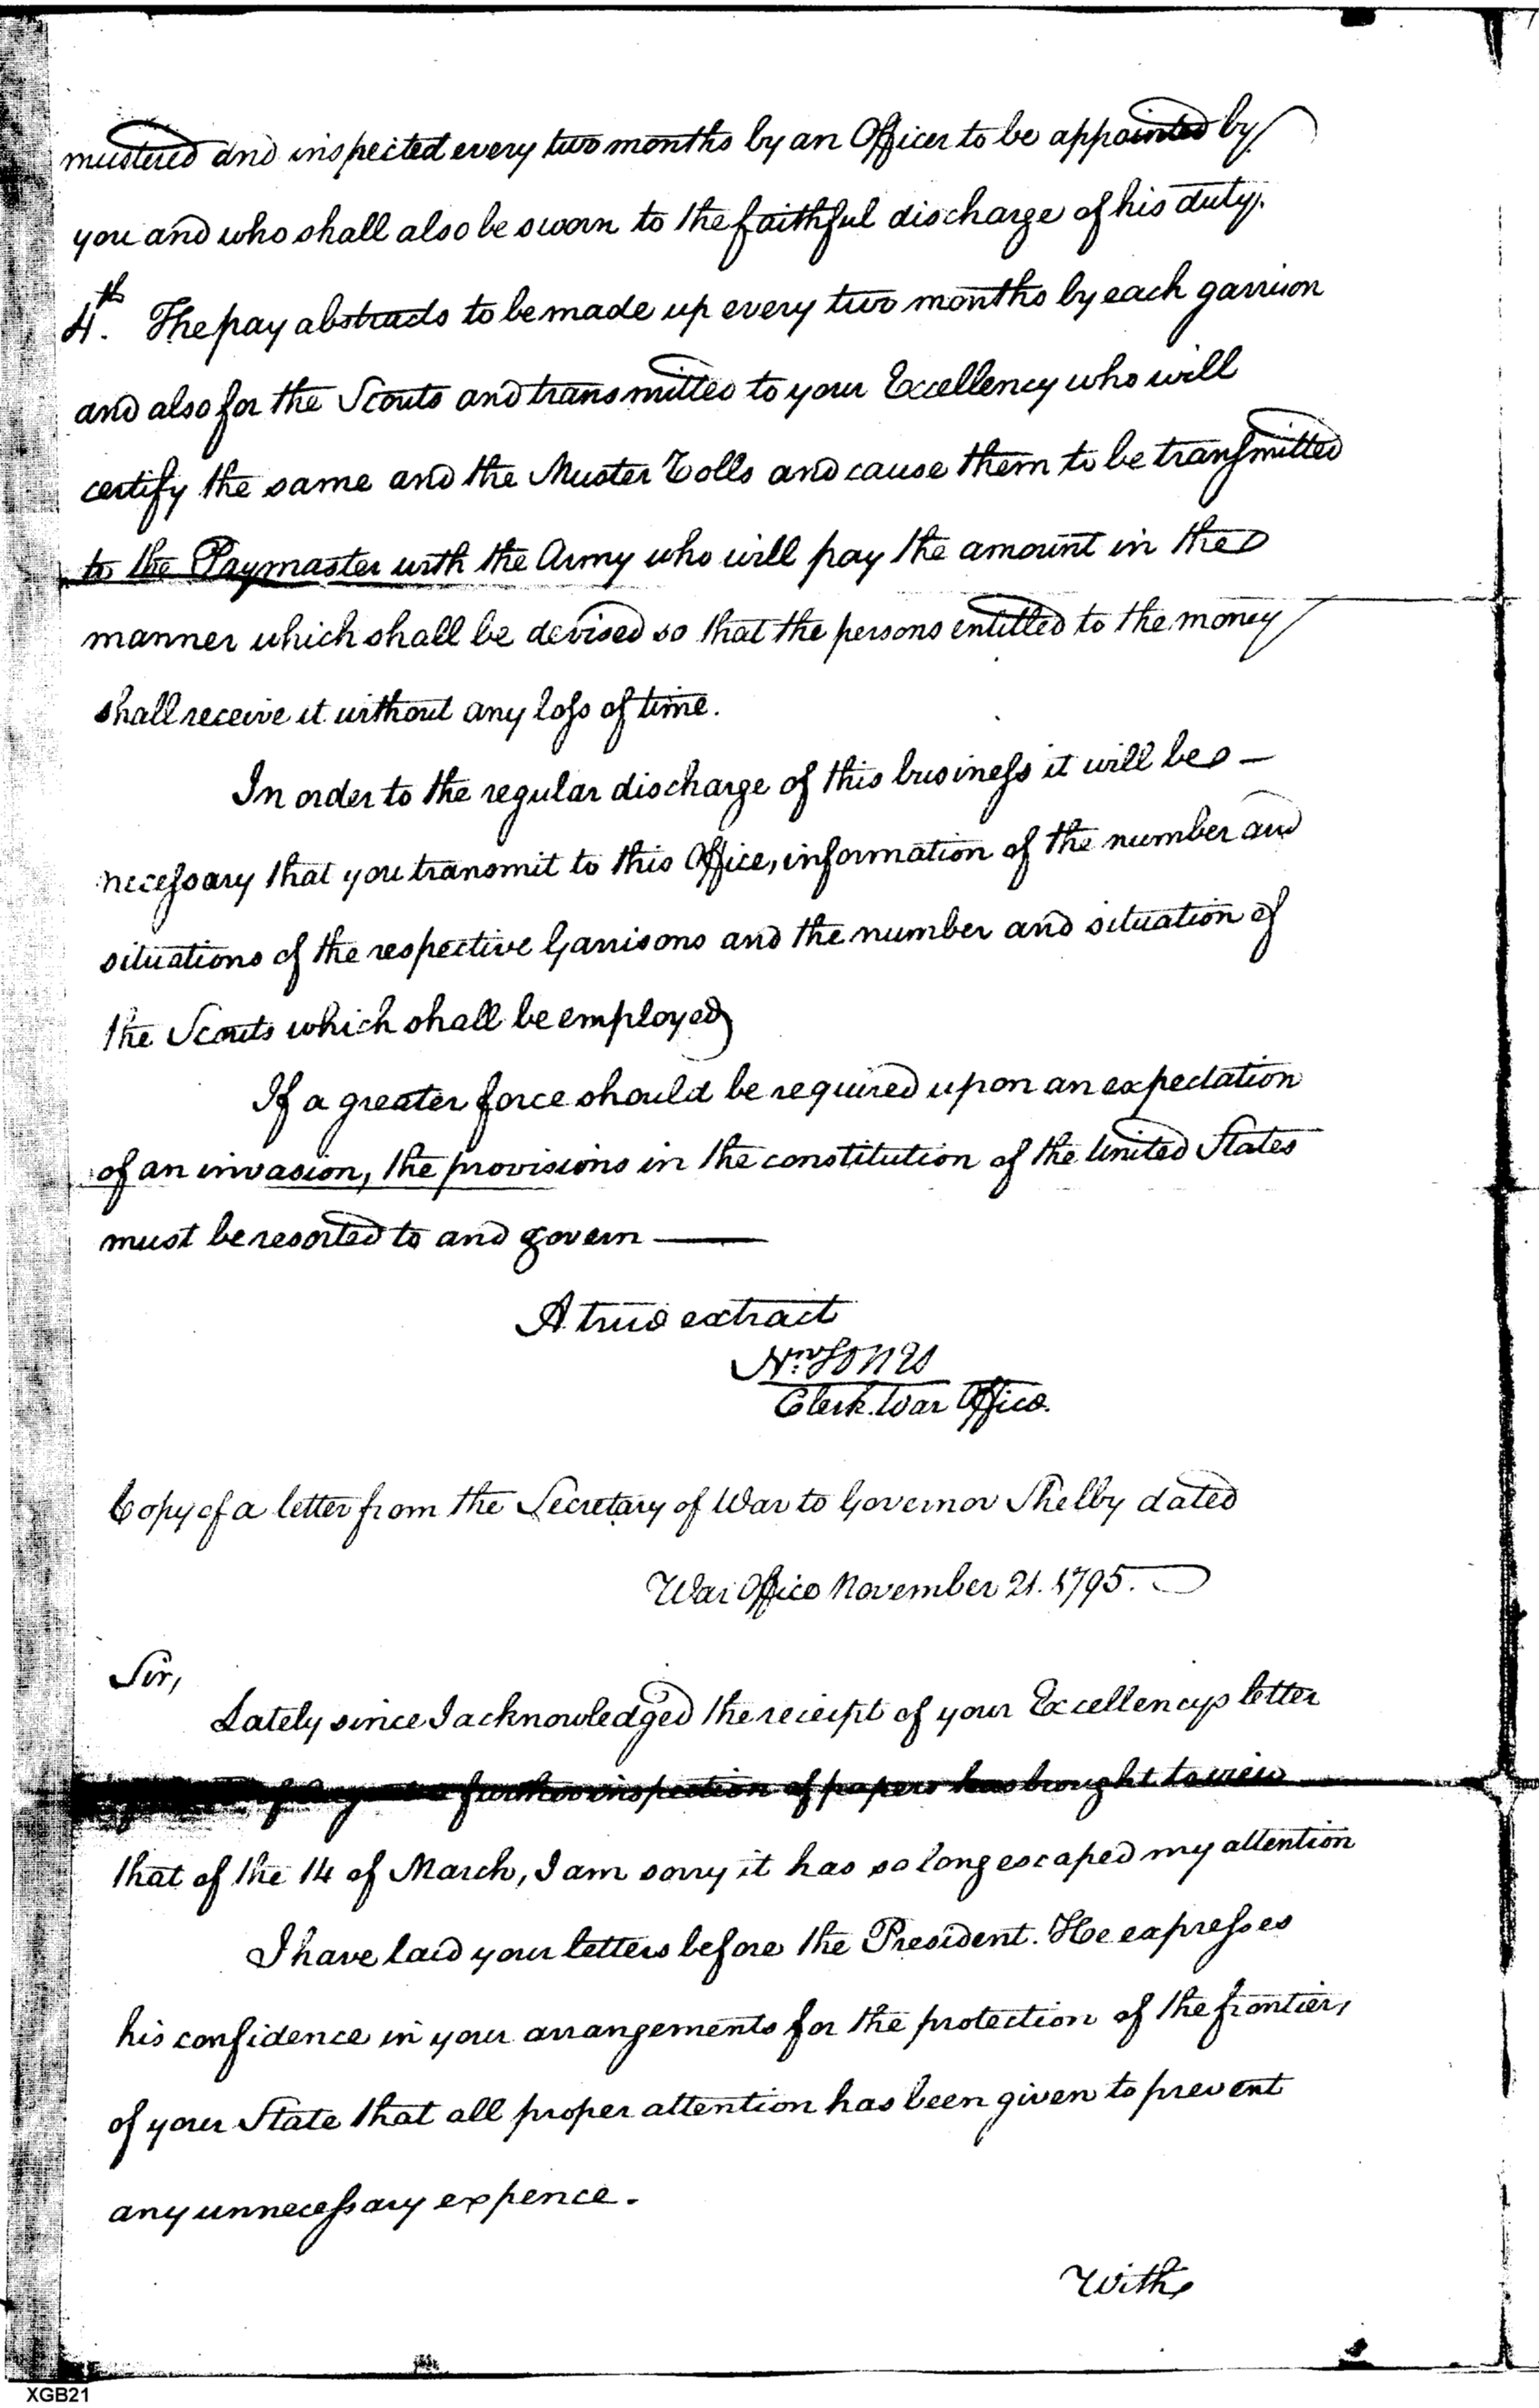 mustered and inspected every two months by an Officer to be appointed by
you and who shall also be sworn to the faithful discharge of his duty.
4th. The pay abstracts to be made up every two months by each garrison
and also for the Scouts and transmitted to your Excellency who will
certify the same and the Muster Rolls and cause them to be transmitted
to the Paymaster with the Army who will pay the amount in the
manner which shall be devised so that the persons entitled to the money
shall receive it without any loss of time.
In order to the regular discharge of this business it will be —
necessary that you transmit to this Office, information of the number and
situations of the respective Garrisons and the number and situation of
the Scouts which shall be employed
If a greater force should be required upon an expectation
of an invasion, the provisions in the constitution of the United States
must be resorted to and govern —
A true extract
Jones
Clerk War Office.
Copy of a letter from the Secretary of War to Governor Shelby dated
War Office November 21. 1795.
Sir,
Lately since I acknowledged the receipt of your Excellencys letter
further inspection of papers has brought to view
that of the 14 of March, I am sorry it has so long escaped my attention
I have laid your letters before the President. He expresses
his confidence in your arrangements for the protection of the frontier,
of your State that all proper attention has been given to prevent
any unnecessary expence.
With
XGB21